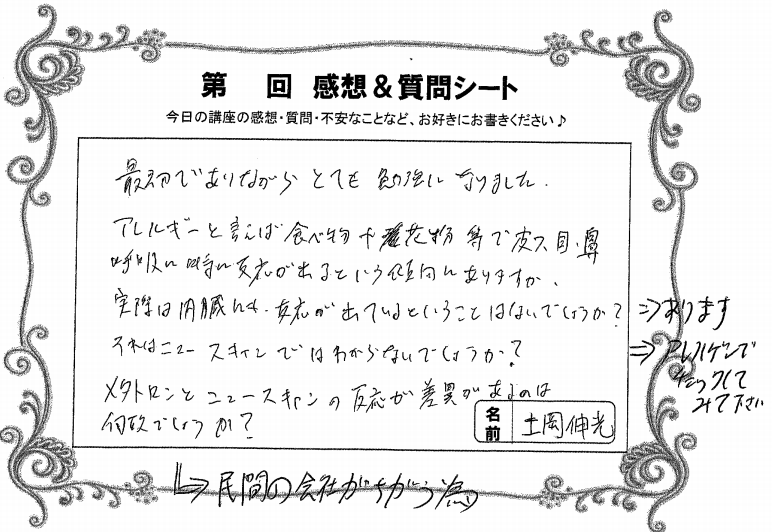 第　回 感想＆質問シート
今日の講座の感想・質問・不安なことなど、お好きにお書きください♪
最初でありながらとても勉強になりました。
アレルギーと言えば食べ物や花粉等で皮フ、目、鼻
呼吸に特に反応が出るという傾向にありますが、
実際は内臓にも、反応が出ているということはないでしょうか？ ⇒あります
それはニュースキャンではわからないでしょうか？ ⇒アレルゲンで
チェックして
みて下さい
メタトロンとニュースキャンの反応が差異があるのは
何故でしょうか？
名前 土岡伸光
↳⇒民間の会社がちがう為